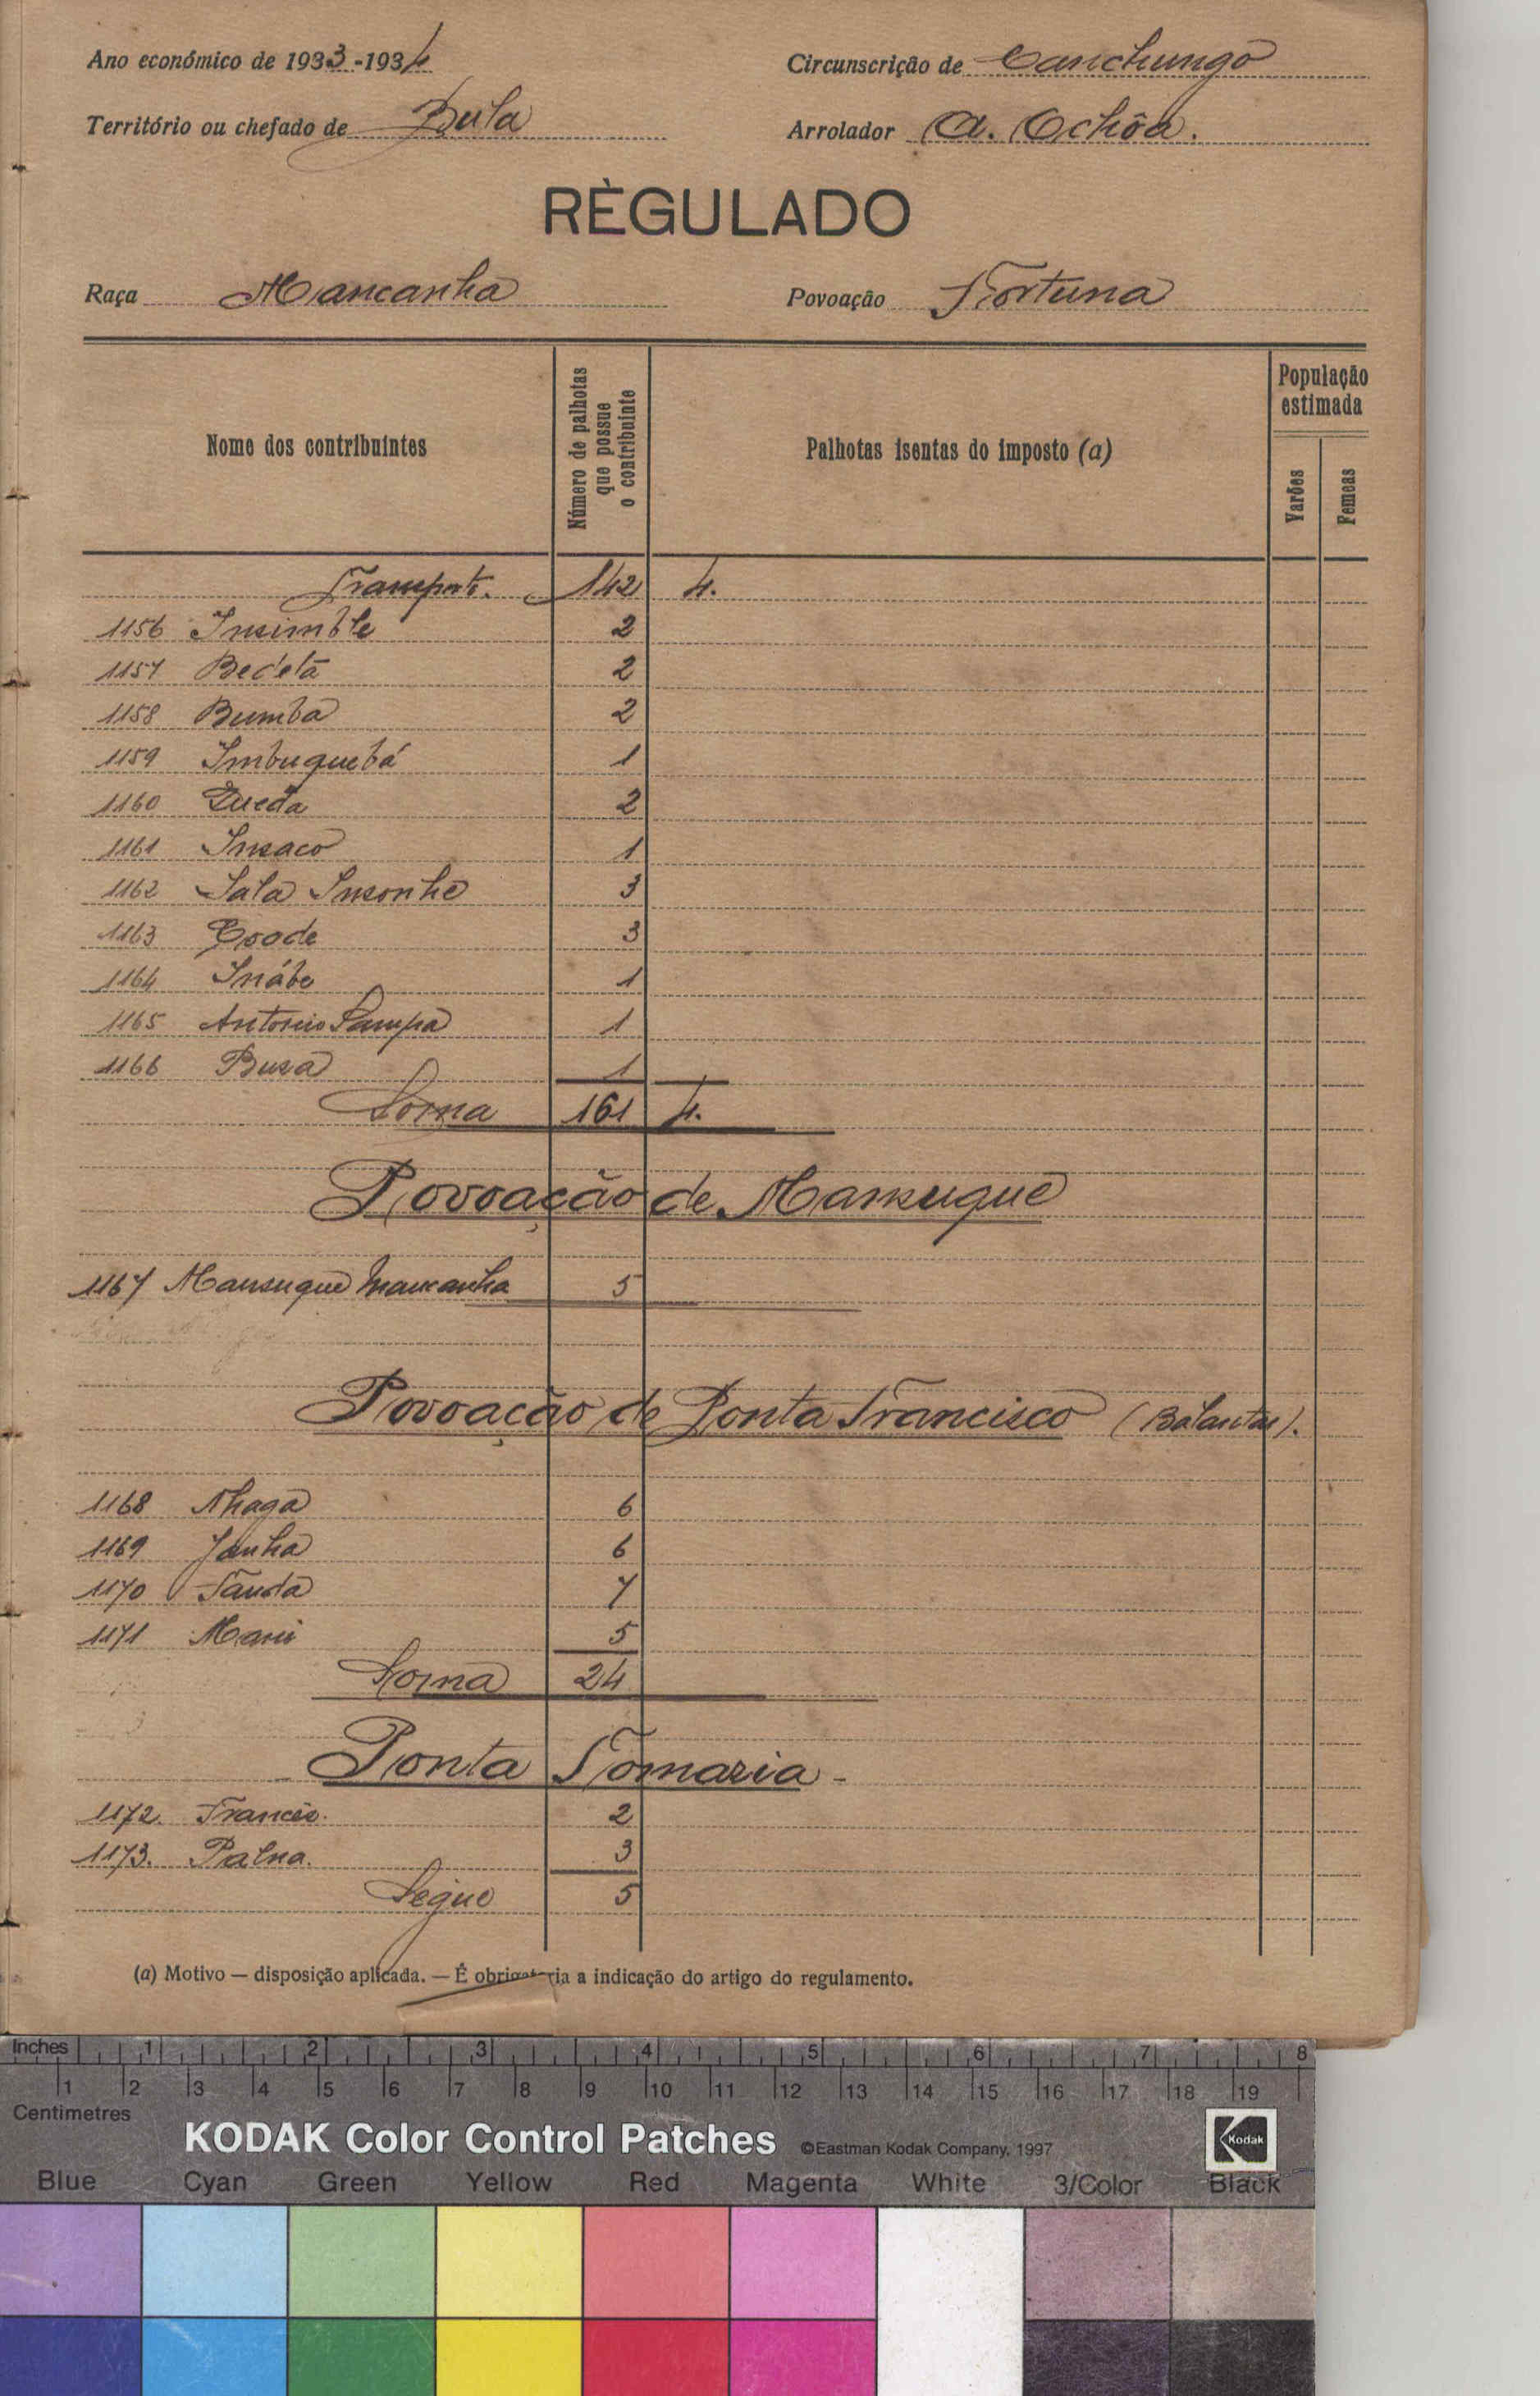 Ano económico de 1933-1934
Circunscrição de Canchungo
Território ou chefado de Bula
Arrolador A. Ochôa.
RÈGULADO
Raça Mancanha
Povoação Fortuna
Nome dos contribuintes
Número de palhotas que possue o contribuinte
Palhotas isentas do imposto (a)
População estimada
Varões
Femeas
Transporte. 142 4.
1156 Insimble 2
1157 Bedetá 2
1158 Bumba 2
1159 Imbuguebá 1
1160 Queda 2
1161 Insaco 1
1162 Sala Insonhe 3
1163 3
1164 Inábe 1
1165 Antonio Sampa 1
1166 Busa 1
Soma 161 4.
Povoação de Mansugue
1167 Mansugue Mancanha 5
Povoação de Ponta Francisco (Balantas).
1168 Nhaga 6
1169 Janha 6
1170 Tanda 7
1171 Mani 5
Soma 24
Ponta Tomazia -
1172. Francês. 2
1173. Palna. 3
Segue 5
(a) Motivo — disposição aplicada. — É obrigatoria a indicação do artigo do regulamento.
Inches 1 2 3 4 5 6 7 8
1 2 3 4 5 6 7 8 9 10 11 12 13 14 15 16 17 18 19
Centimetres
KODAK Color Control Patches ©Eastman Kodak Company, 1997 Kodak
Blue Cyan Green Yellow Red Magenta White 3/Color Black